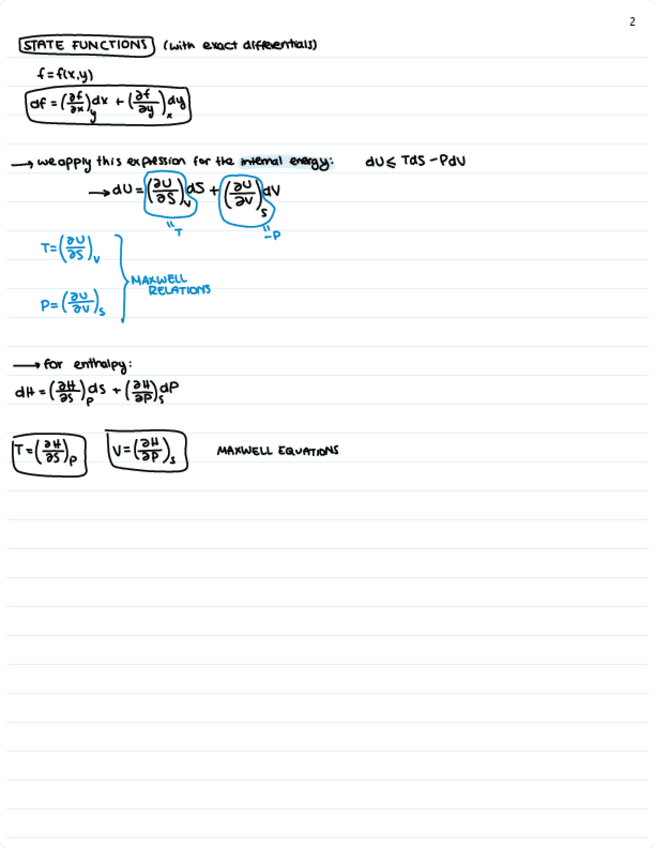 2
STATE FUNCTIONS (with exact differentials)
f = f(x,y)
df = (∂f/∂x)_y dx + (∂f/∂y)_x dy
→ we apply this expression for the internal energy: dU ≤ TdS - PdV
→ dU = (∂U/∂S)_V dS + (∂U/∂V)_S dV
" T " -P
T = (∂U/∂S)_V
MAXWELL
RELATIONS
P = (∂U/∂V)_S
→ for enthalpy:
dH = (∂H/∂S)_P dS + (∂H/∂P)_S dP
T = (∂H/∂S)_P V = (∂H/∂P)_S MAXWELL EQUATIONS